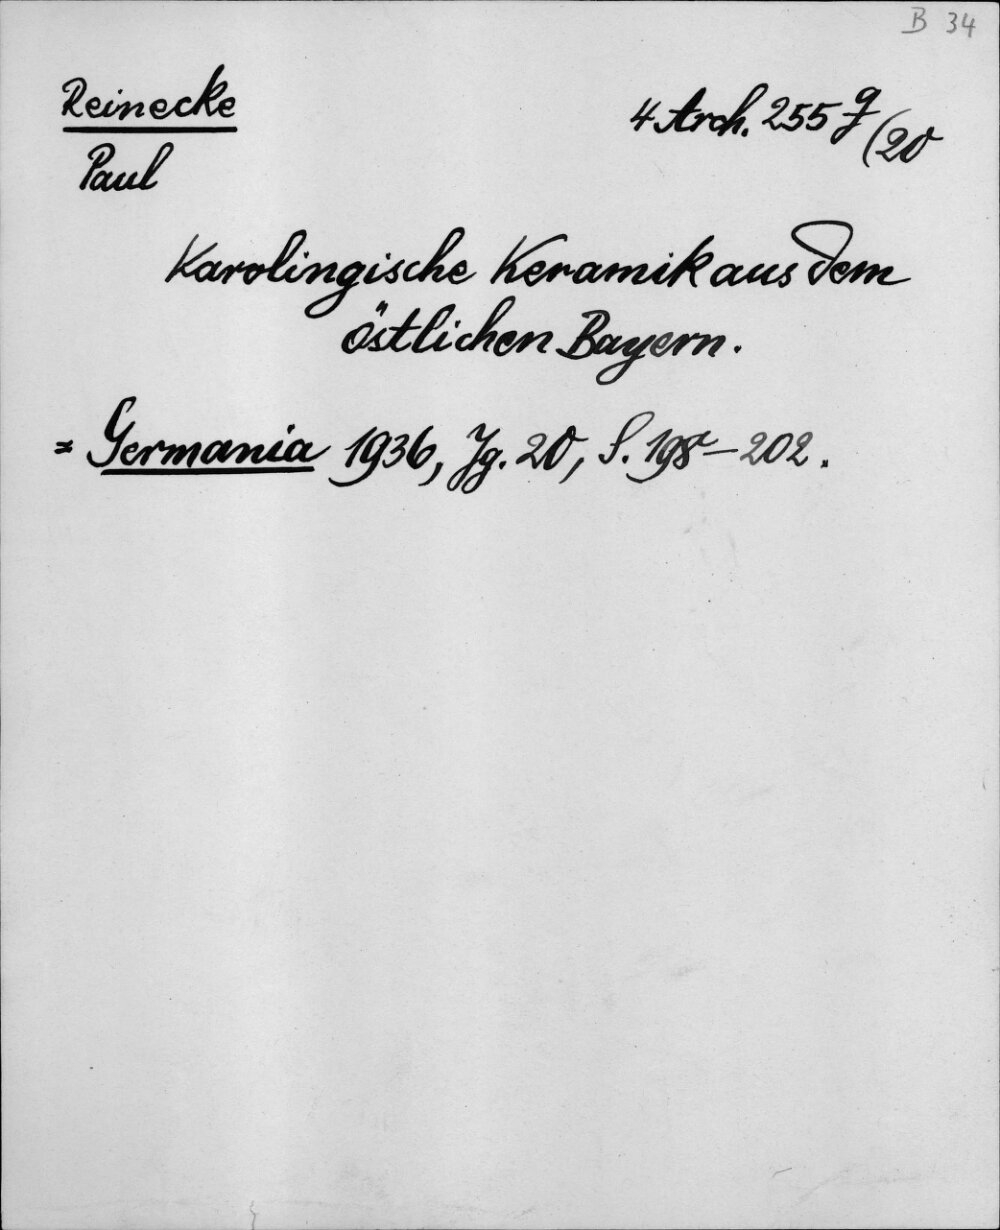 B 34
Reinecke
4 Arch. 255 g (20
Paul
Karolingische Keramik aus dem
östlichen Bayern.
= Germania 1936, Jg. 20, S. 198-202.